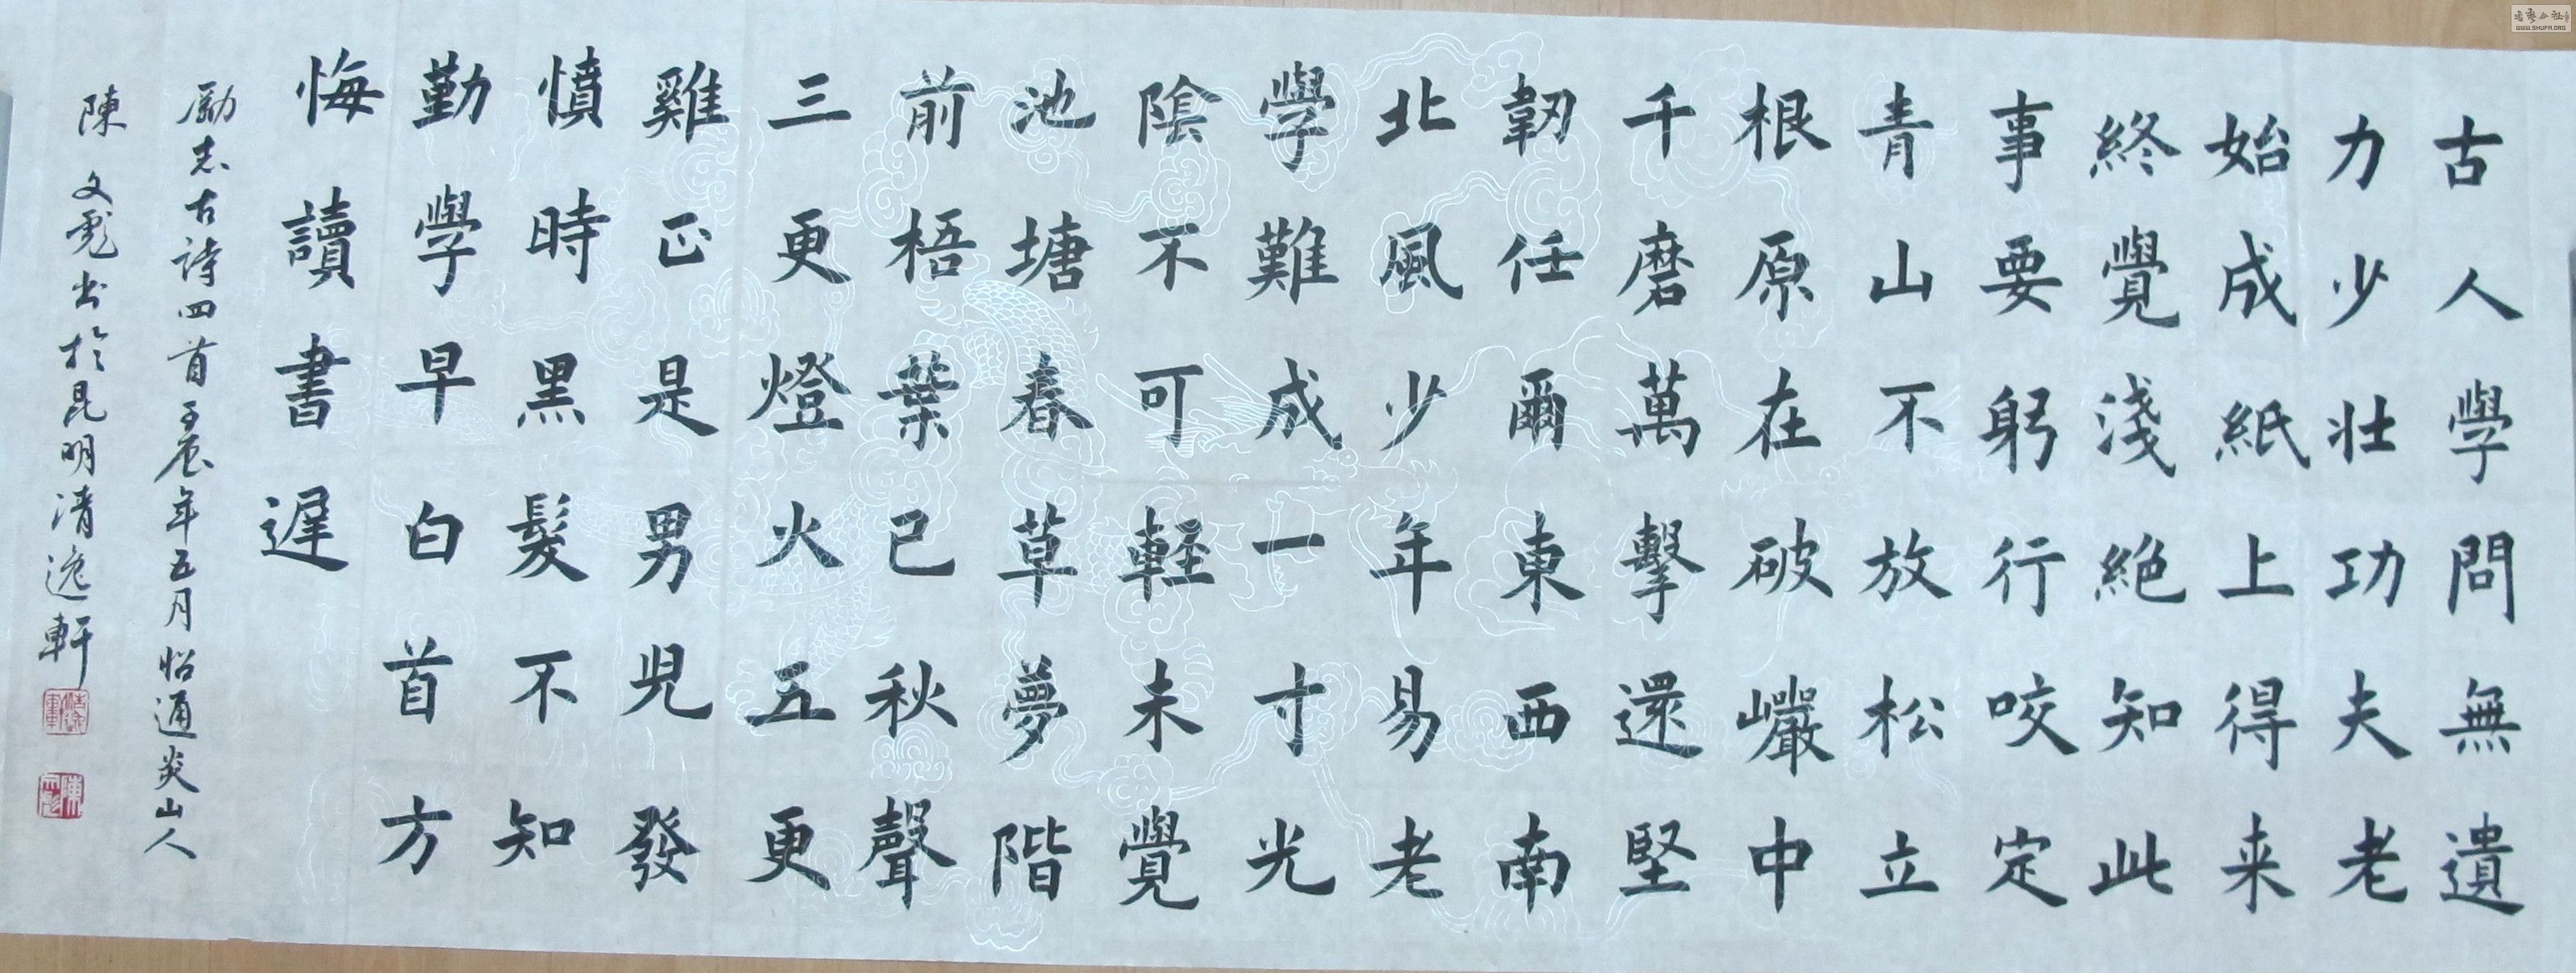 古人學問無遺
力少壯功夫老
始成紙上得来
終覺淺絶知此
事要躬行咬定
青山不放松立
根原在破巖中
千磨萬擊還堅
韌任爾東西南
北風少年易老
學難成一寸光
陰不可軽未覺
池塘春草夢階
前梧葉已秋聲
三更燈火五更
雞正是男児發
憤時黑髮不知
勤學早白首方
悔讀書遲
勵志古詩四首壬辰年五月昭通炎山人
陳文彪书於昆明清逸軒
WWW.SHUFA.ORG